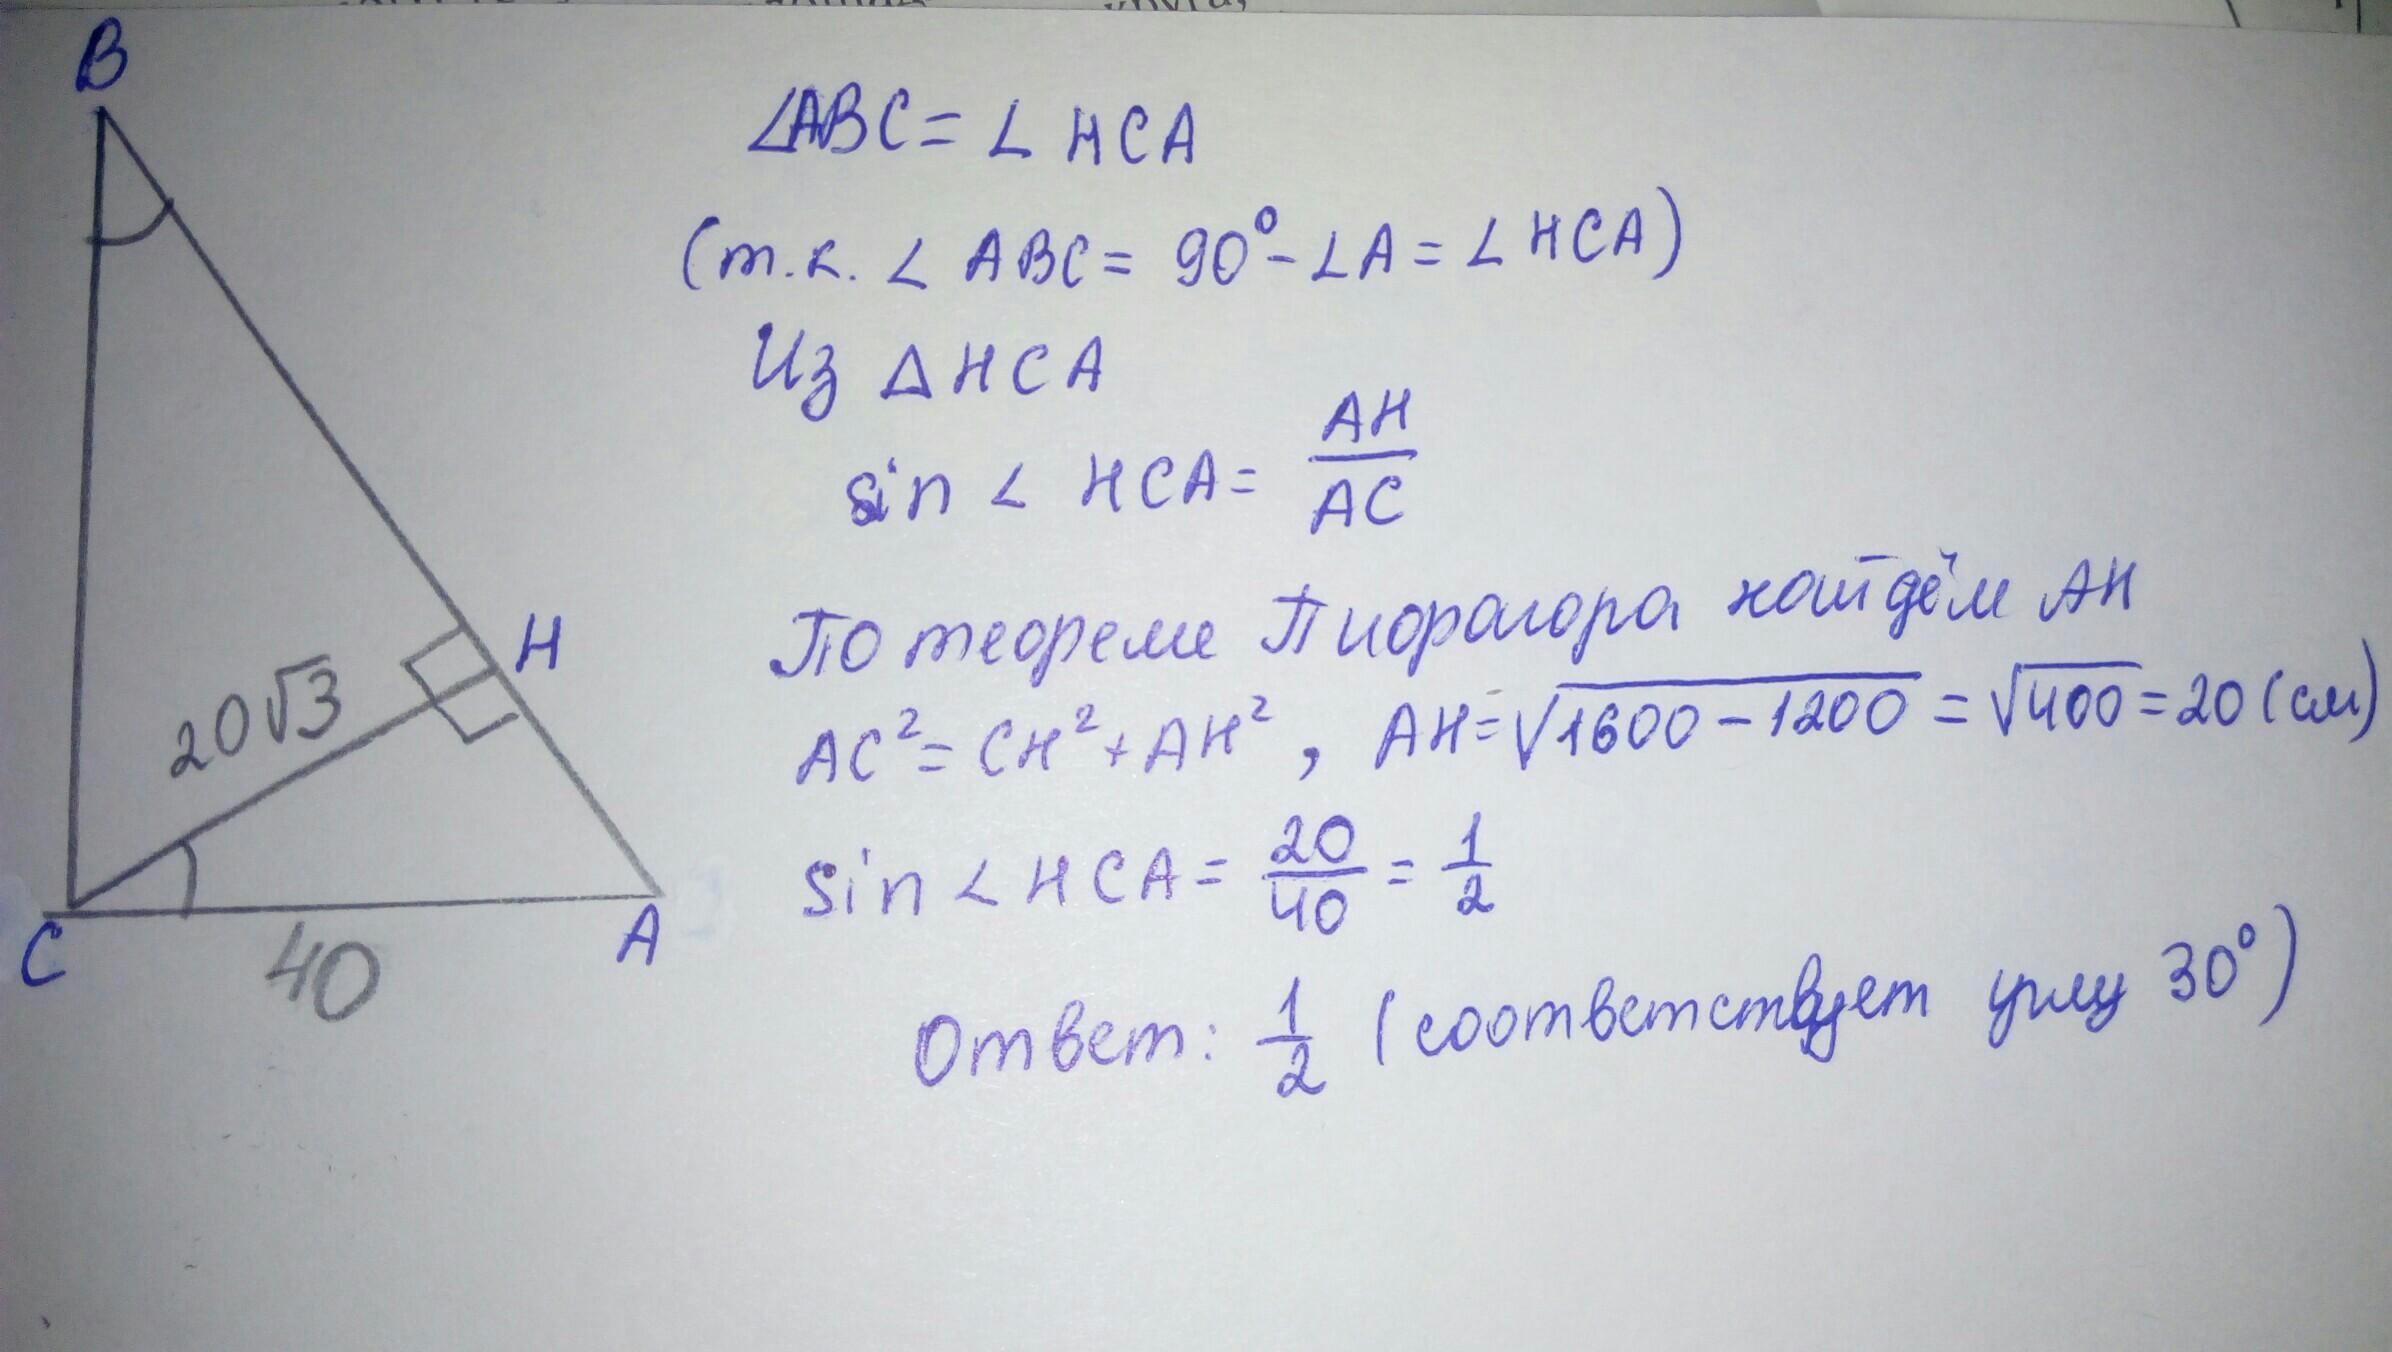 B
∠ABC = ∠HCA
(т.к. ∠ABC = 90° - ∠A = ∠HCA)
Из △HCA
sin∠HCA = AH/AC
По теореме Пифагора найдём AH
AC² = CH² + AH², AH = √1600 - 1200 = √400 = 20 (см)
sin∠HCA = 20/40 = 1/2
Ответ: 1/2 (соответствует углу 30°)
H
20√3
C
40
A